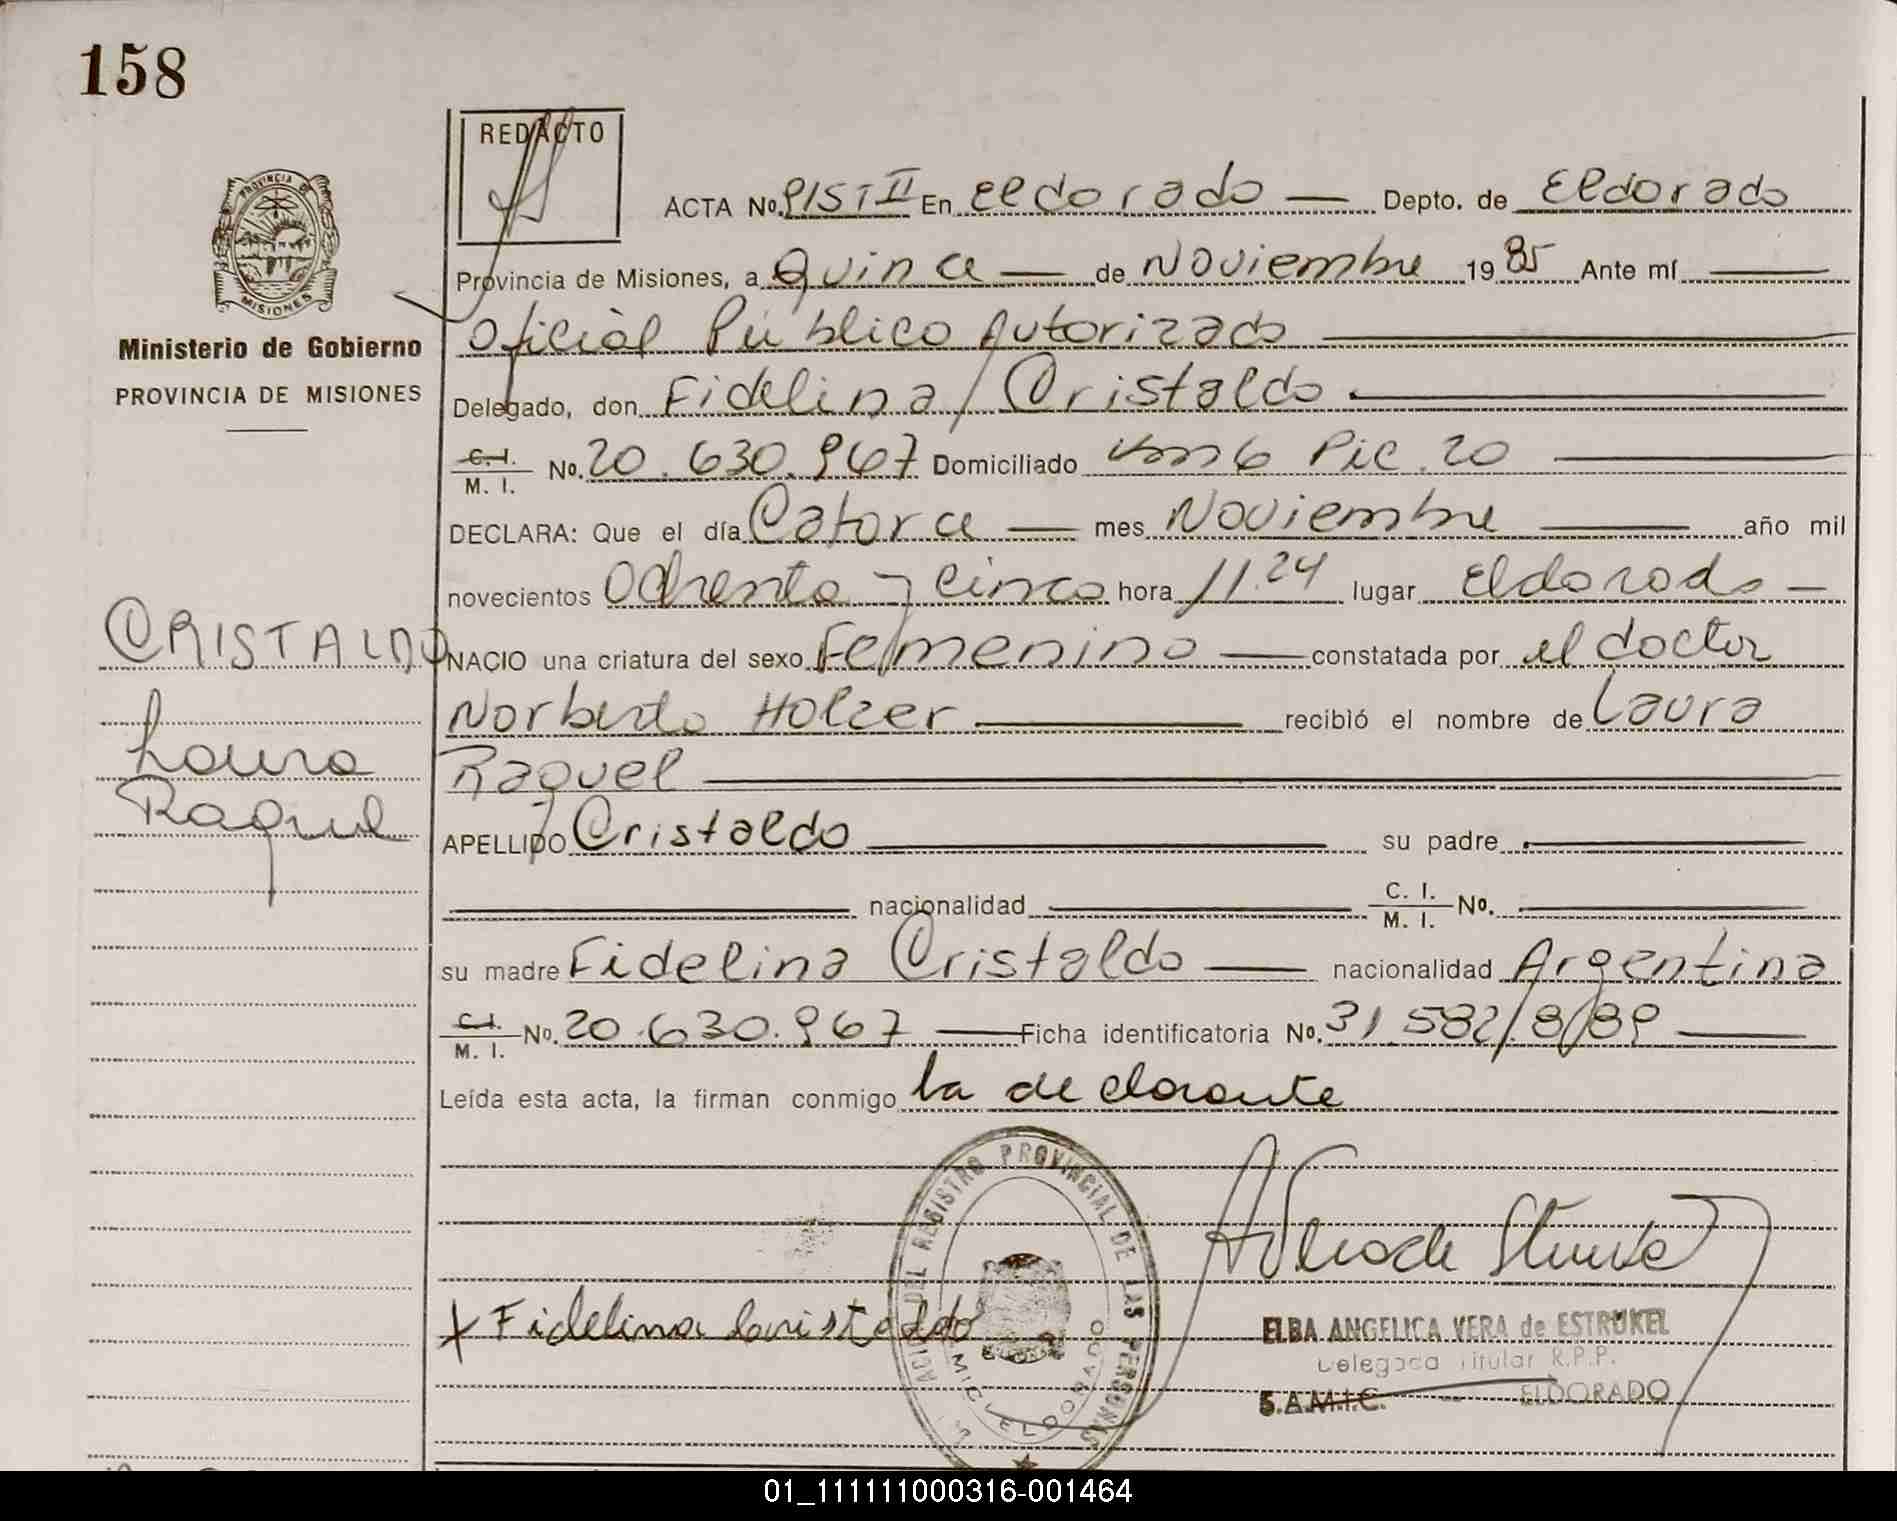 158
REDACTO
PROVINCIA DE
MISIONES
Ministerio de Gobierno
PROVINCIA DE MISIONES
ACTA No. 915 T II En Eldorado — Depto. de Eldorado
Provincia de Misiones, a Quince — de Noviembre 1985 Ante mí —
Oficial Público Autorizado —
Delegado, don Fidelina Cristaldo —
C. I. / M. I. No. 20.630.967 Domiciliado Km 6 Pic. 20 —
DECLARA: Que el día Catorce — mes Noviembre — año mil
novecientos Ochenta y Cinco hora 11.24 lugar Eldorado —
CRISTALDO
NACIO una criatura del sexo Femenino — constatada por el doctor
Norberto Holzer — recibió el nombre de Laura
Laura
Raquel —
Raquel
APELLIDO Cristaldo — su padre —
— nacionalidad — C. I. / M. I. No. —
su madre Fidelina Cristaldo — nacionalidad Argentina
C. I. / M. I. No. 20.630.967 — Ficha identificatoria No. 31.582/8/89 —
Leída esta acta, la firman conmigo la declarante
REGISTRO PROVINCIAL DE LAS PERSONAS
ELDORADO
x Fidelina Cristaldo
ELBA ANGELICA VERA de ESTRUKEL
Delegada Titular R.P.P.
S.A.M.I.C. ELDORADO
01_111111000316-001464